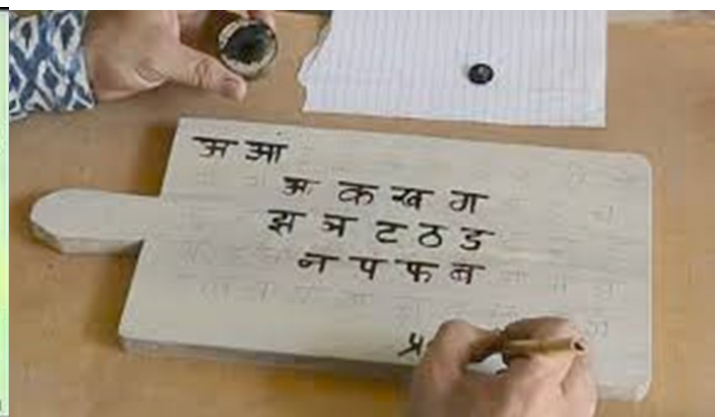 अ आ
अ क ख ग
झ ञ ट ठ ड
न प फ ब
प्र